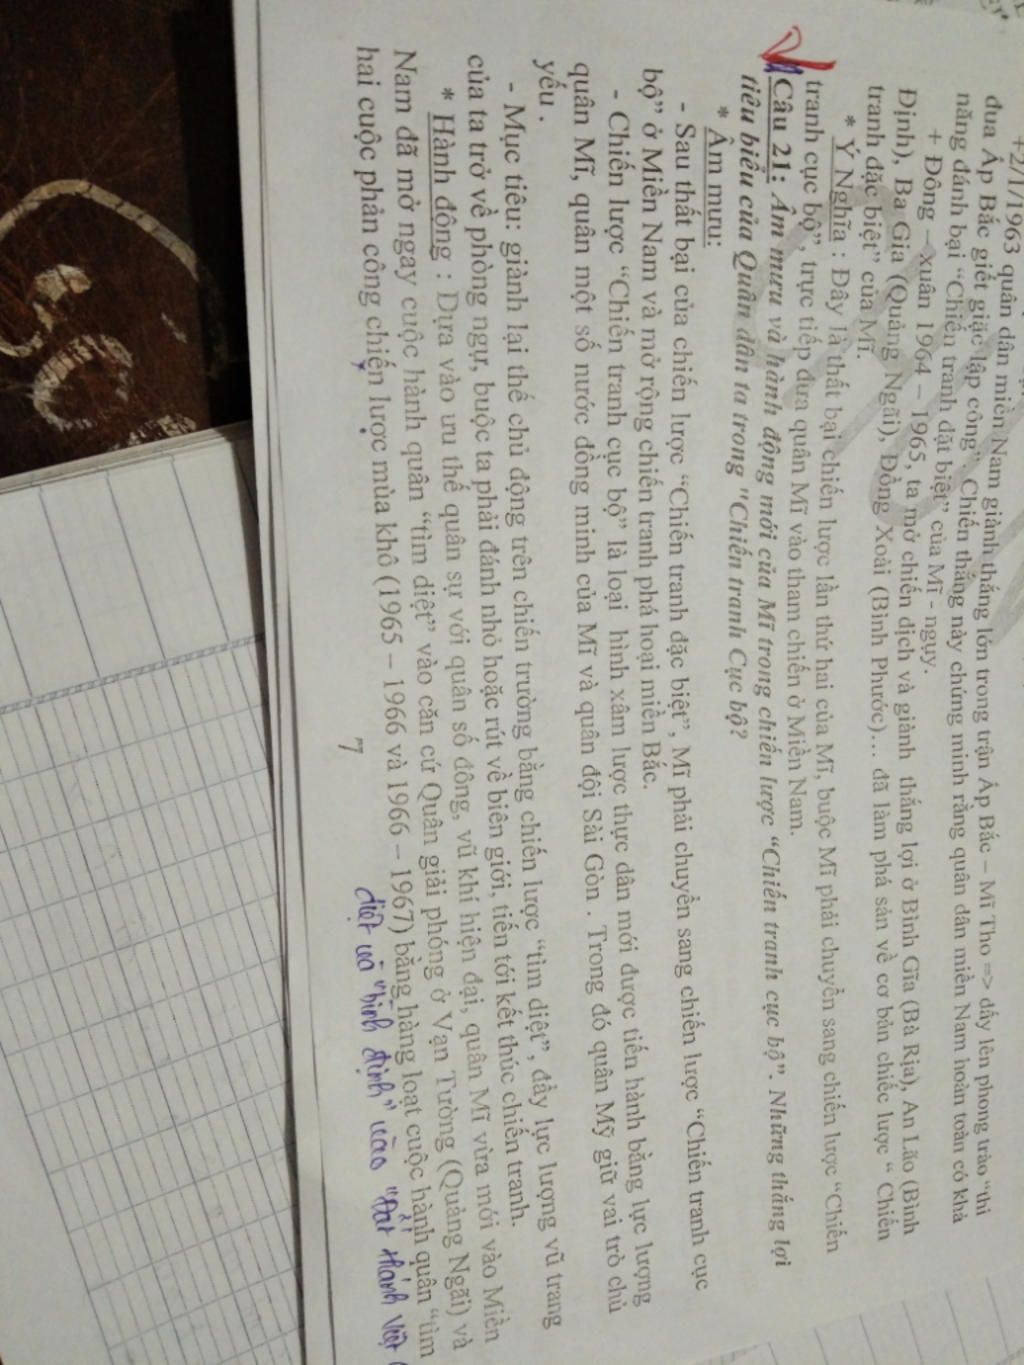 +2/1/1963 quân dân miền Nam giành thắng lớn trong trận Ấp Bắc – Mĩ Tho => dấy lên phong trào “thi
đua Ấp Bắc giết giặc lập công”. Chiến thắng này chứng minh rằng quân dân miền Nam hoàn toàn có khả
năng đánh bại “Chiến tranh đặt biệt” của Mĩ - ngụy.
+ Đông – xuân 1964 – 1965, ta mở chiến dịch và giành thắng lợi ở Bình Gĩa (Bà Rịa), An Lão (Bình
Định), Ba Gia (Quảng Ngãi), Đồng Xoài (Bình Phước)… đã làm phá sản về cơ bản chiếc lược “ Chiến
tranh đặc biệt” của Mĩ.
* Ý Nghĩa : Đây là thất bại chiến lược lần thứ hai của Mĩ, buộc Mĩ phải chuyển sang chiến lược “Chiến
tranh cục bộ”, trực tiếp đưa quân Mĩ vào tham chiến ở Miền Nam.
Câu 21: Âm mưu và hành động mới của Mĩ trong chiến lược “Chiến tranh cục bộ”. Những thắng lợi
tiêu biểu của Quân dân ta trong "Chiến tranh Cục bộ?
* Âm mưu:
- Sau thất bại của chiến lược “Chiến tranh đặc biệt”, Mĩ phải chuyển sang chiến lược “Chiến tranh cục
bộ” ở Miền Nam và mở rộng chiến tranh phá hoại miền Bắc.
- Chiến lược “Chiến tranh cục bộ” là loại hình xâm lược thực dân mới được tiến hành bằng lực lượng
quân Mĩ, quân một số nước đồng minh của Mĩ và quân đội Sài Gòn . Trong đó quân Mỹ giữ vai trò chủ
yếu .
- Mục tiêu: giành lại thế chủ động trên chiến trường bằng chiến lược “tìm diệt”, đẩy lực lượng vũ trang
của ta trở về phòng ngự, buộc ta phải đánh nhỏ hoặc rút về biên giới, tiến tới kết thúc chiến tranh.
* Hành động : Dựa vào ưu thế quân sự với quân số đông, vũ khí hiện đại, quân Mĩ vừa mới vào Miền
Nam đã mở ngay cuộc hành quân “tìm diệt” vào căn cứ Quân giải phóng ở Vạn Tường (Quảng Ngãi) và
hai cuộc phản công chiến lược mùa khô (1965 – 1966 và 1966 – 1967) bằng hàng loạt cuộc hành quân “tìm
diệt và "bình định" vào "Đất thánh Việt
7